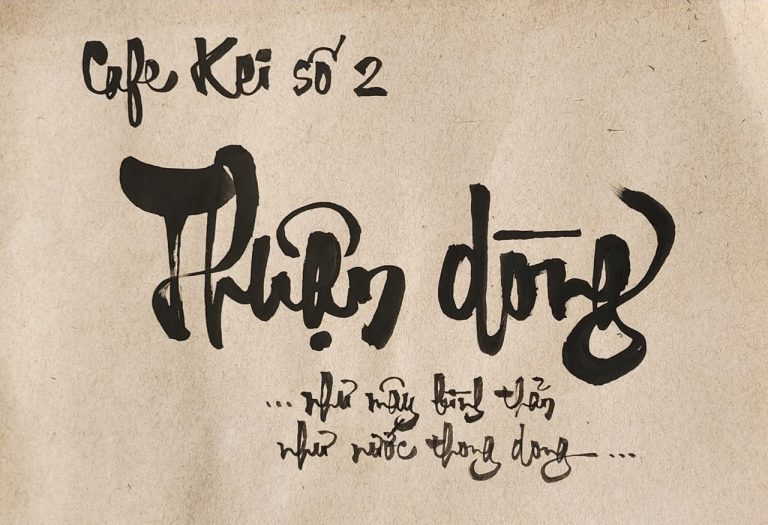 Cafe Kei số 2
Thuận dòng
... như mây bình thản
như nước thong dong ...